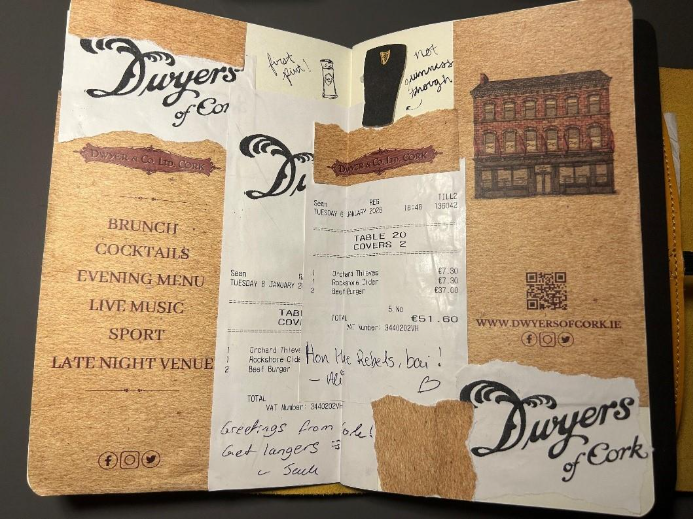 Dwyers
of Cor
DWYER & CO. LTD. CORK
BRUNCH
COCKTAILS
EVENING MENU
LIVE MUSIC
SPORT
LATE NIGHT VENUE
first
pint!
Dw
Sean
TUESDAY 6 JANUARY 2
TABL
COVE
1 Orchard Thieve
1 Rockshore Cide
2 Beef Burger
TOTAL
VAT Number: 3440202VH
Greetings from
Get langers
not
guinness
though
DWYER & CO. LTD. CORK
Sean REG TILL2
TUESDAY 6 JANUARY 2025 18:48 136042
TABLE 20
COVERS 2
1 Orchard Thieves €7.30
1 Rockshore Cider €7.30
2 Beef Burger €37.00
5 No
TOTAL €51.60
VAT Number: 3440202VH
Hon the Rebels, bai!
WWW.DWYERSOFCORK.IE
Dwyers
of Cork